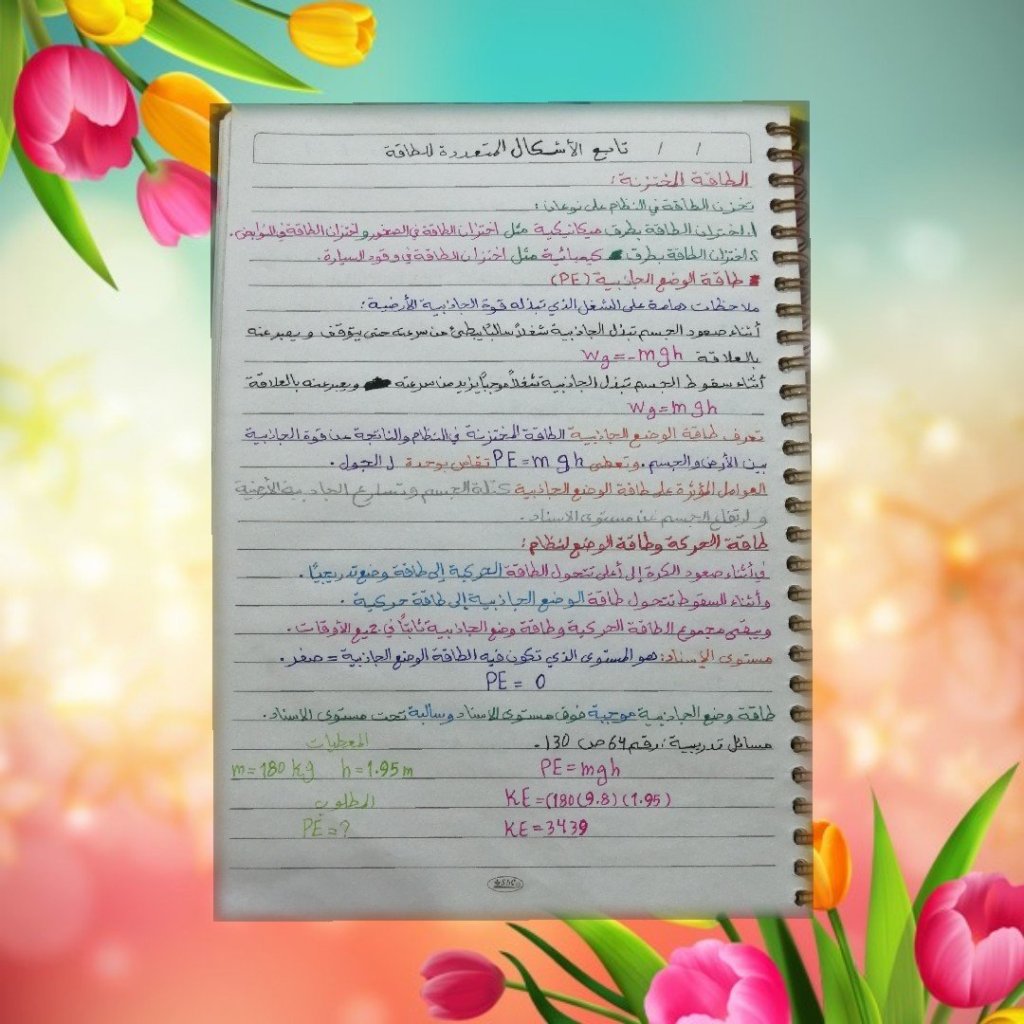 / / تابع الأشكال المتعددة للطاقة
الطاقة المختزنة:
تخزن الطاقة في النظام على نوعان:
1. اختزان الطاقة بطرق ميكانيكية مثل اختزان الطاقة في الصخور واختزان الطاقة في النوابض.
2. اختزان الطاقة بطرق كيميائية مثل اختزان الطاقة في وقود السيارة.
طاقة الوضع الجاذبية (PE)
ملاحظات هامة على الشغل الذي تبذله قوة الجاذبية الأرضية:
أثناء صعود الجسم تبذل الجاذبية شغلاً سالبًا يبطئ من سرعته حتى يتوقف ويعبر عنه
بالعلاقة Wg=-mgh
أثناء سقوط الجسم تبذل الجاذبية شغلاً موجبًا يزيد من سرعته ويعبر عنه بالعلاقة
Wg=mgh
تعرف طاقة الوضع الجاذبية الطاقة المختزنة في النظام والناتجة عن قوة الجاذبية
بين الأرض والجسم. وتعطى PE=mgh تقاس بوحدة J الجول.
العوامل المؤثرة على طاقة الوضع الجاذبية كتلة الجسم وتسارع الجاذبية الأرضية
و ارتفاع الجسم عن مستوى الاسناد.
طاقة الحركة وطاقة الوضع لنظام:
في أثناء صعود الكرة إلى أعلى تتحول الطاقة الحركية إلى طاقة وضع تدريجيًا.
وأثناء السقوط تتحول طاقة الوضع الجاذبية إلى طاقة حركية.
ويبقى مجموع الطاقة الحركية وطاقة وضع الجاذبية ثابتًا في جميع الأوقات.
مستوى الإسناد: هو المستوى الذي تكون فيه الطاقة الوضع الجاذبية = صفر.
PE = 0
طاقة وضع الجاذبية موجبة فوق مستوى الاسناد وسالبة تحت مستوى الاسناد.
مسائل تدريبية: رقم 64 ص 130.
المعطيات
PE=mgh
m=180 kg h=1.95 m
KE=(180(9.8)(1.95)
المطلوب
KE=3439
PE=?